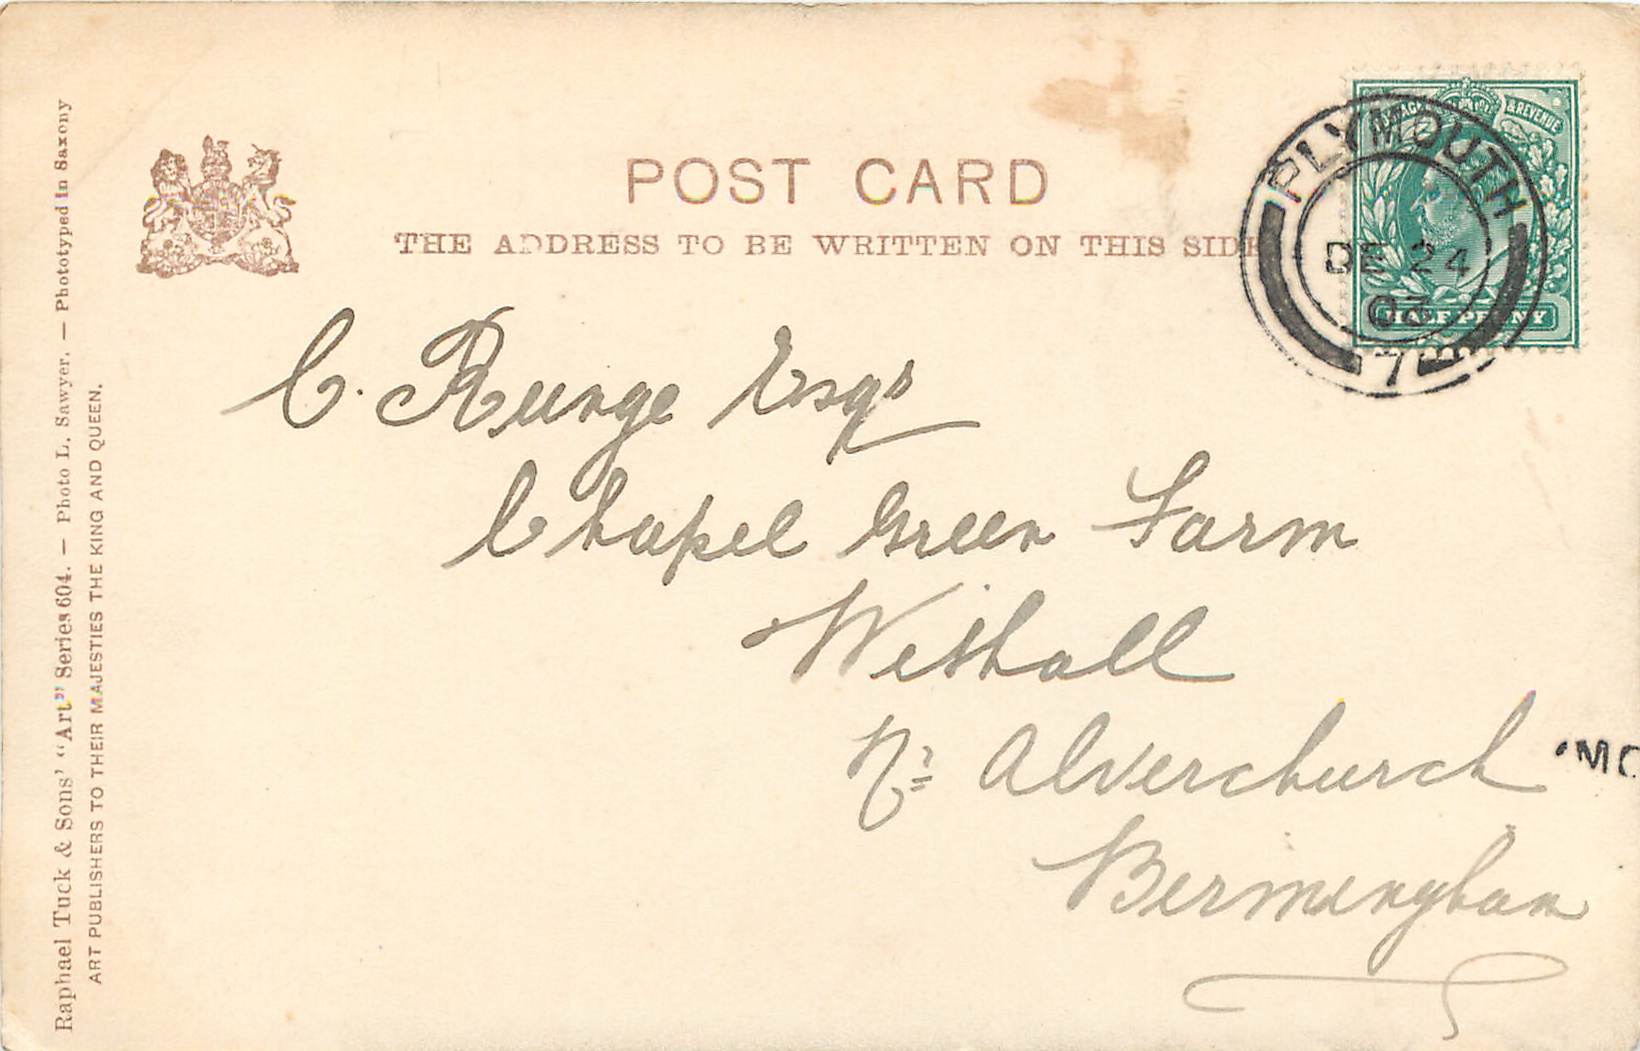 POST CARD
THE ADDRESS TO BE WRITTEN ON THIS SIDE
POSTAGE & REVENUE
PLYMOUTH
DE 24
03
7
HALF PENNY
C. Runge Esqr
Chapel Green Farm
Wishall
Nr Alverchurch
Bermingham
MO
Raphael Tuck & Sons' "Art" Series 604. — Photo L. Sawyer. — Phototyped in Saxony
ART PUBLISHERS TO THEIR MAJESTIES THE KING AND QUEEN.